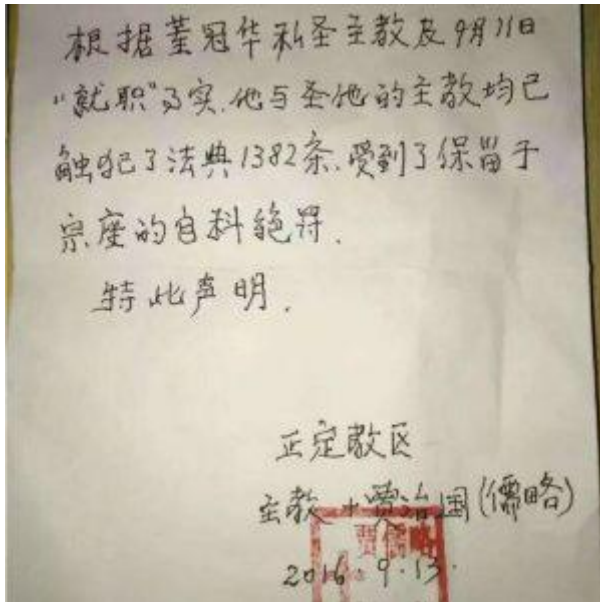 根据董冠华私圣主教及9月11日
“就职”事实.他与圣他的主教均已
触犯了法典1382条.受到了保留于
宗座的自科绝罚.
特此声明.
正定教区
主教十贾治国(儒略)
贾儒略
2016.9.13.